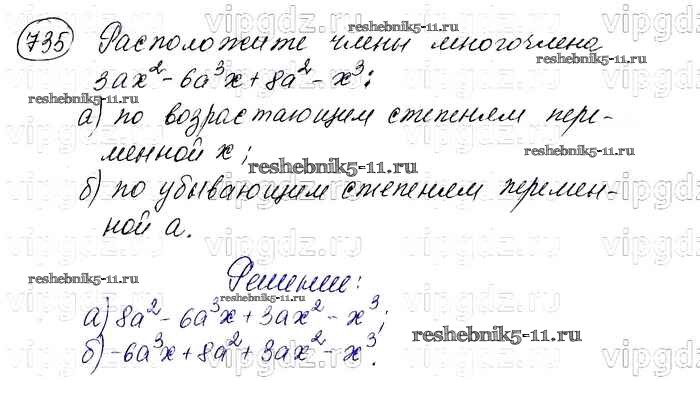 735 Расположите члены многочлена
3ax² - 6a³x + 8a² - x³:
а) по возрастающим степеням пере-
менной x;
б) по убывающим степеням перемен-
ной a.
Решение:
а) 8a² - 6a³x + 3ax² - x³;
б) -6a³x + 8a² + 3ax² - x³.
reshebnik5-11.ru
reshebnik5-11.ru
reshebnik5-11.ru
reshebnik5-11.ru
reshebnik5-11.ru
reshebnik5-11.ru
reshebnik5-11.ru
reshebnik5-11.ru
vipgdz.ru
vipgdz.ru
vipgdz.ru